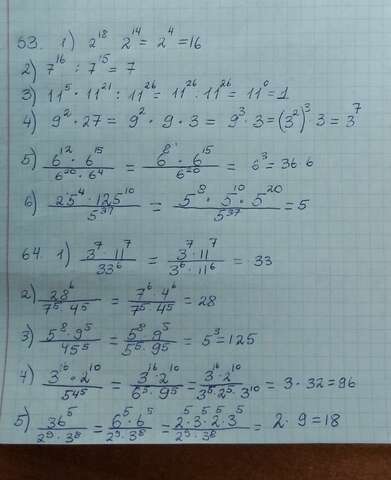 63. 1) 2^18 2^14 = 2^4 = 16
2) 7^16 : 7^15 = 7
3) 11^5 · 11^21 : 11^26 = 11^26 · 11^26 = 11^0 = 1
4) 9^2 · 27 = 9^2 · 9 · 3 = 9^3 · 3 = (3^2)^3 · 3 = 3^7
5) (6^12 · 6^15)/(6^20 · 6^4) = (6^8 · 6^15)/(6^20) = 6^3 = 36·6
6) (25^4 · 125^10)/(5^37) = (5^8 · 5^10 · 5^20)/(5^37) = 5
64. 1) (3^7 · 11^7)/(33^6) = (3^7 · 11^7)/(3^6 · 11^6) = 33
2) (28^6)/(7^5 · 4^5) = (7^6 · 4^6)/(7^5 · 4^5) = 28
3) (5^8 · 9^5)/(45^5) = (5^8 · 9^5)/(5^5 · 9^5) = 5^3 = 125
4) (3^16 · 2^10)/(54^5) = (3^16 · 2^10)/(6^5 · 9^5) = (3^16 · 2^10)/(3^5 · 2^5 · 3^10) = 3 · 32 = 96
5) (36^5)/(2^9 · 3^8) = (6^5 · 6^5)/(2^9 · 3^8) = (2^5 · 3^5 · 2^5 · 3^5)/(2^9 · 3^8) = 2 · 9 = 18